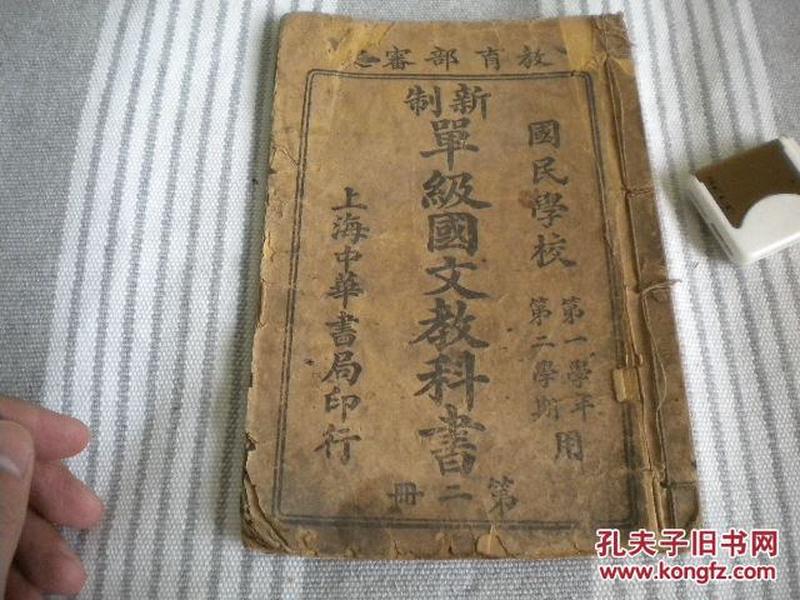 教育部審
國民學校
第一學年
第二學期
用
新制
單級國文教科書
第二冊
上海中華書局印行
孔夫子旧书网
www.kongfz.com